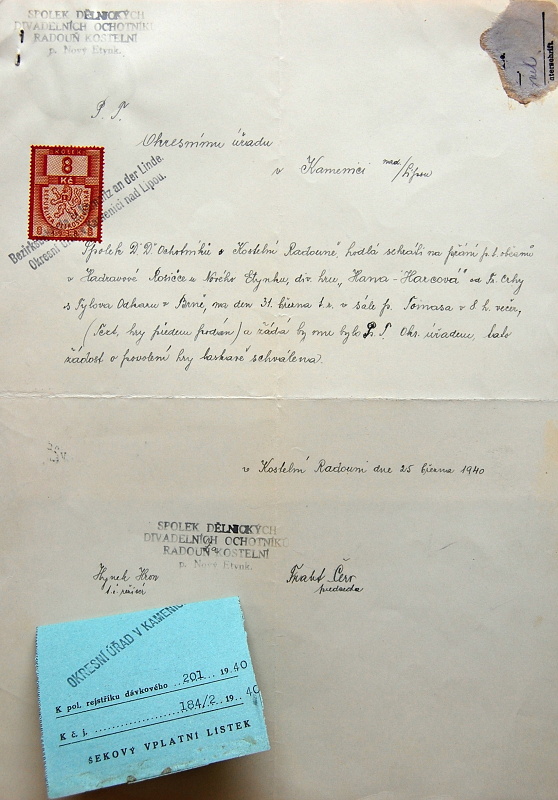 SPOLEK DĚLNICKÝCH
DIVADELNÍCH OCHOTNÍKŮ
RADOUŇ KOSTELNÍ
p. Nový Etynk.
P. T.
Okresnímu úřadu
v Kamenici nad/Lipou
8
Kč
8 8
Bezirksbehörde in Kamenitz an der Linde.
Okresní úřad v Kamenici nad Lipou.
Spolek D. D. Ochotníků v Kostelní Radouni, hodlá sehráti na přání p. t. občanů
v Hadravově Rosičce u Nového Etynku, div. hru „Hana Harcová" od
s Tylova Odkazu v Brně, na den 31. března t. r. v sále p. Tomasa v 8 h. večer,
(Text. hry předem podán) a žádá by mu bylo P. T. Okr. úřadem, tato
žádost o povolení hry laskavě schválena.
v Kostelní Radouni dne 25 března 1940
SPOLEK DĚLNICKÝCH
DIVADELNÍCH OCHOTNÍKŮ
RADOUŇ KOSTELNÍ
p. Nový Etynk.
Hynek Hron
předseda
OKRESNÍ ÚŘAD V KAMENIC
K pol. rejstříku dávkového 201 19 40
K č. j. 184/2 19 40
ŠEKOVÝ VPLATNÍ LÍSTEK